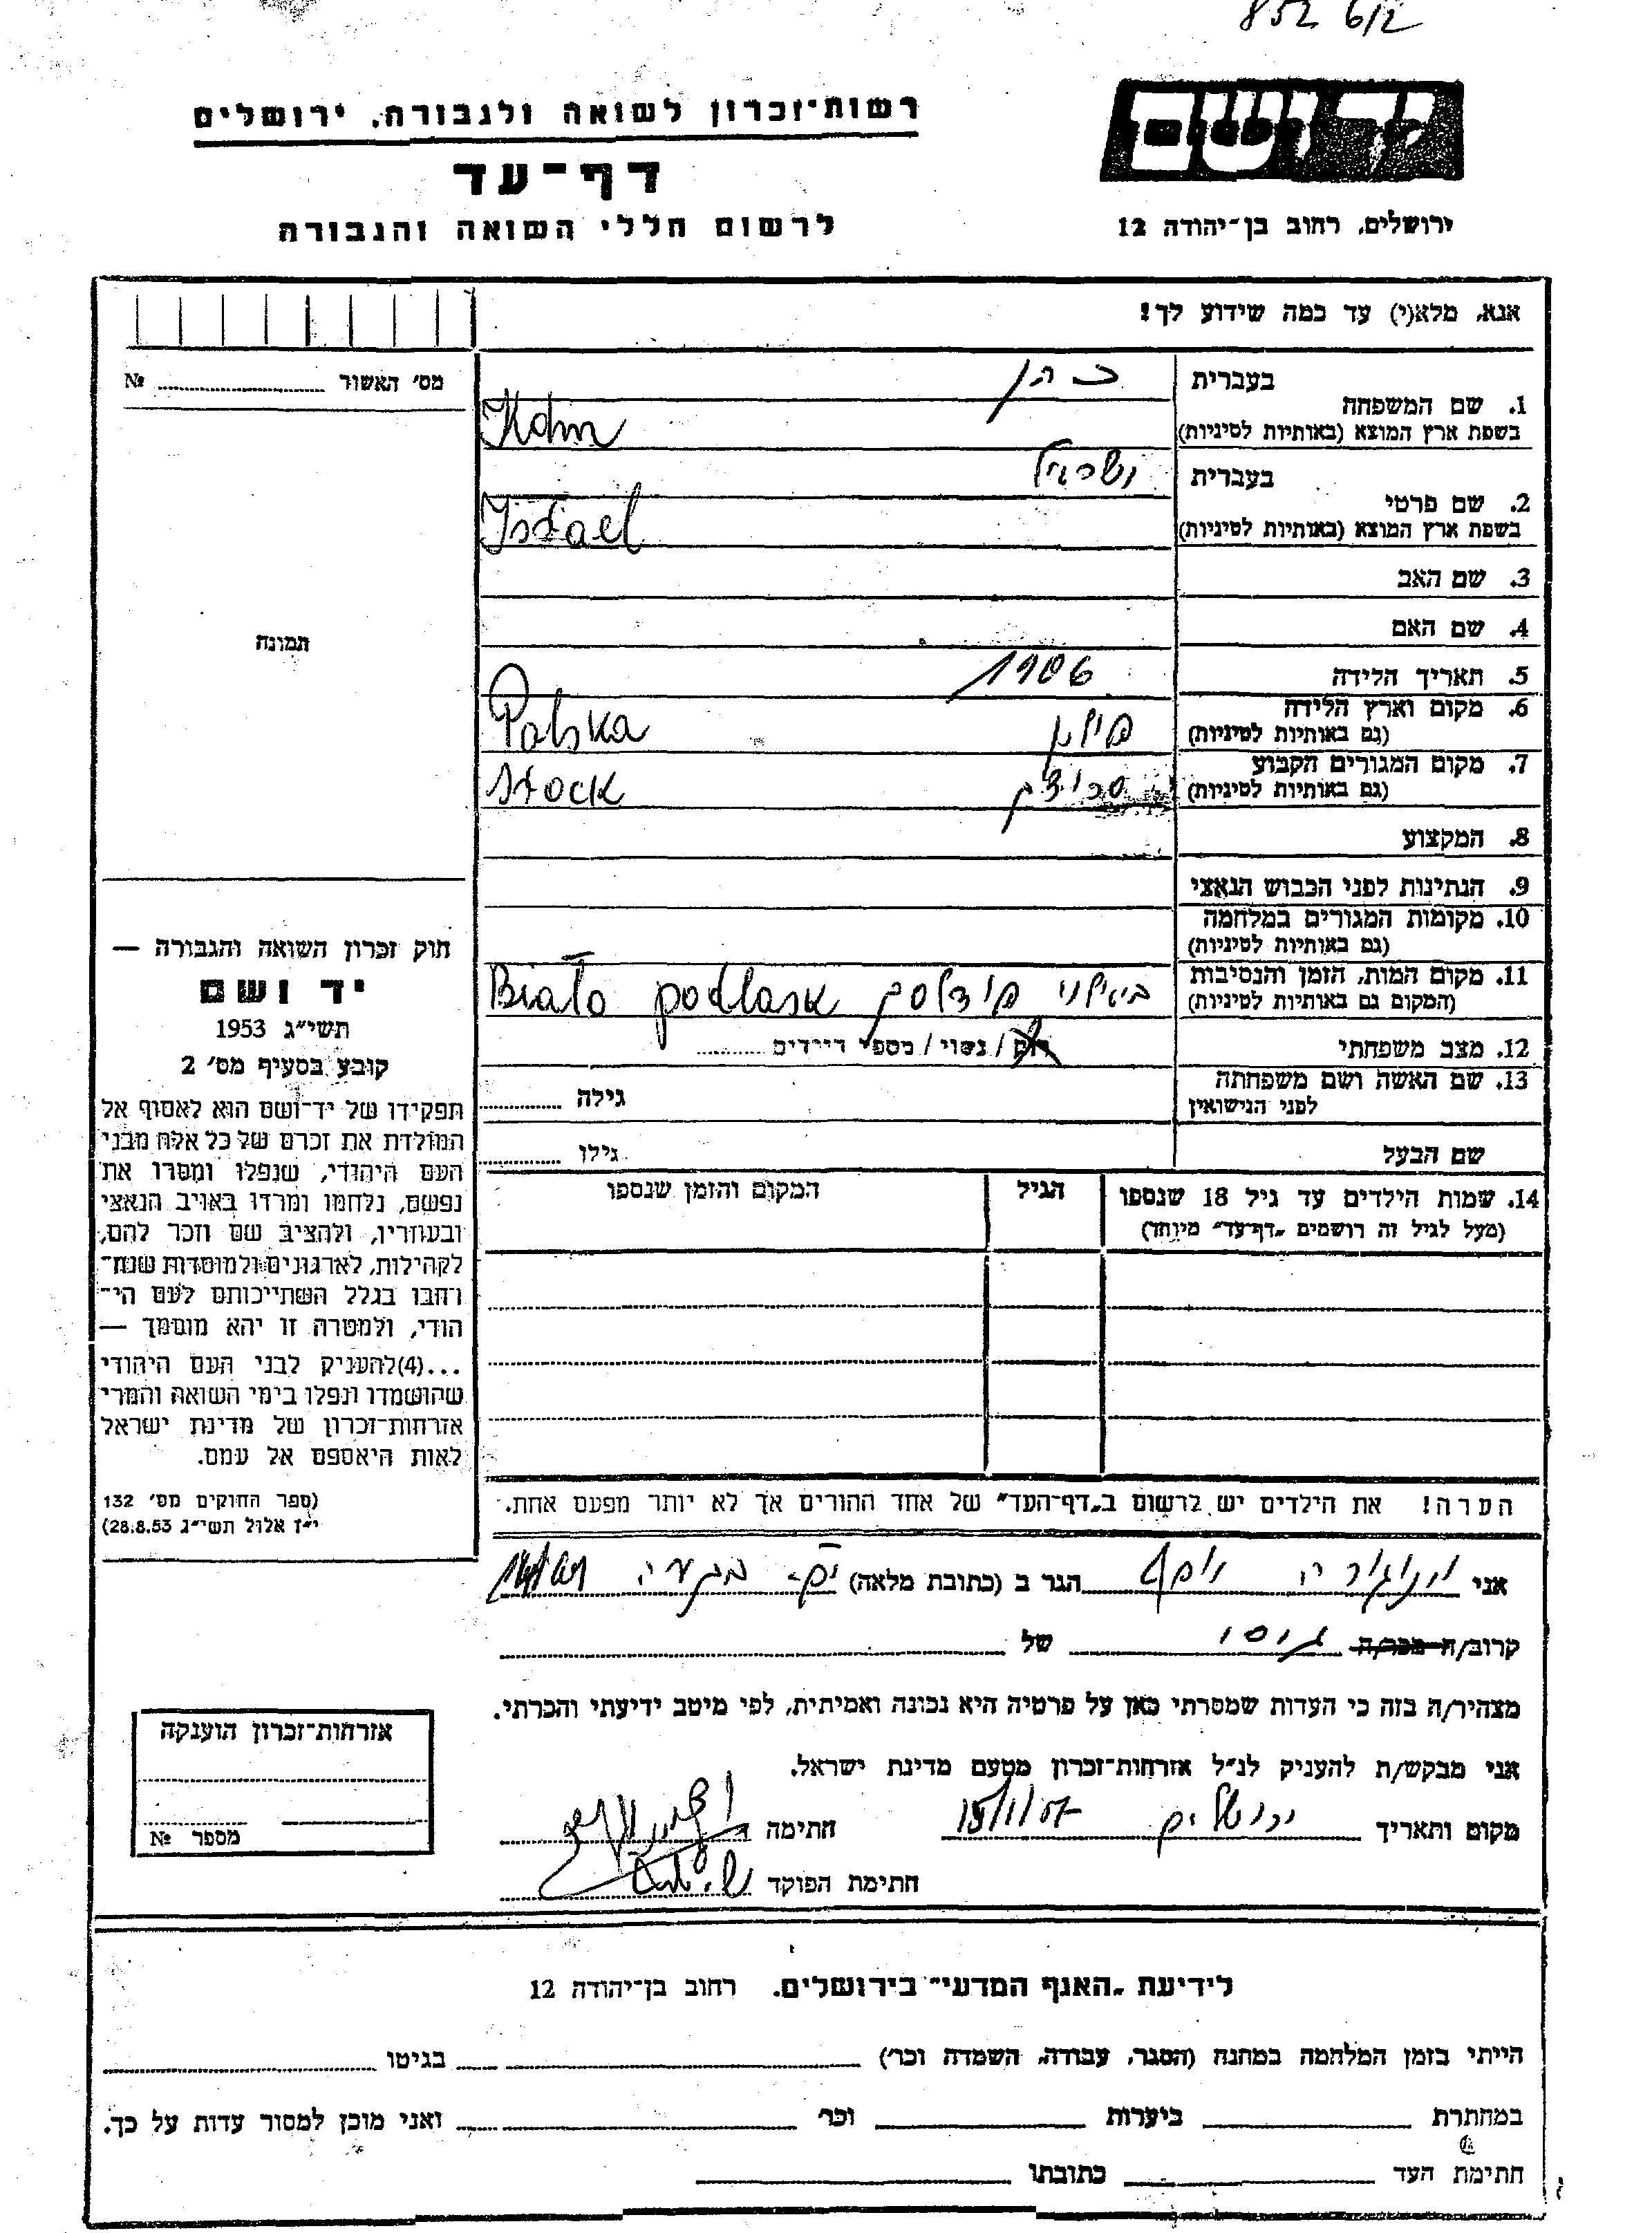 852 612
יד ושם
רשות־זכרון לשואה ולגבורה, ירושלים
דף־עד
לרשום חללי השואה והגבורה
ירושלים, רחוב בן־יהודה 12
אנא, מלא(י) עד כמה שידוע לך!
מס׳ האשור № 
בעברית כהן
1. שם המשפחה
בשפת ארץ המוצא (באותיות לטיניות) Kohn
בעברית ישראל
2. שם פרטי
בשפת ארץ המוצא (באותיות לטיניות) Israel
3. שם האב
4. שם האם
5. תאריך הלידה 1906
6. מקום וארץ הלידה
(גם באותיות לטיניות) פולין Polska
7. מקום המגורים הקבוע
(גם באותיות לטיניות) Stock
8. המקצוע
9. הנתינות לפני הכבוש הנאצי
10. מקומות המגורים במלחמה
(גם באותיות לטיניות)
11. מקום המות, הזמן והנסיבות
(המקום גם באותיות לטיניות) Biało podlask
12. מצב משפחתי רוק / נשוי / מספר הילדים
13. שם האשה ושם משפחתה
לפני הנישואין גילה
שם הבעל גילו
14. שמות הילדים עד גיל 18 שנספו
(מעל לגיל זה רושמים "דף־עד" מיוחד)
הגיל
המקום והזמן שנספו
הערה! את הילדים יש לרשום ב"דף־העד" של אחד ההורים אך לא יותר מפעם אחת.
תמונה
חוק זכרון השואה והגבורה —
יד ושם
תשי״ג 1953
קובע בסעיף מס׳ 2
תפקידו של יד־ושם הוא לאסוף אל
המולדת את זכרם של כל אלה מבני
העם היהודי, שנפלו ומסרו את
נפשם, נלחמו ומרדו באויב הנאצי
ובעוזריו, ולהציב שם וזכר להם,
לקהילות, לארגונים ולמוסדות שנח־
רבו בגלל השתייכותם לעם הי־
הודי, ולמטרה זו יהא מוסמך —
...(4)להעניק לבני העם היהודי
שהושמדו ונפלו בימי השואה והמרי
אזרחות־זכרון של מדינת ישראל
לאות היאספם אל עמם.
(ספר החוקים מס׳ 132
י״ז אלול תשי״ג 28.8.53)
אני יוסף הגר ב (כתובת מלאה)
קרוב/ה מכר/ה גיסו של
מצהיר/ה בזה כי העדות שמסרתי כאן על פרטיה היא נכונה ואמיתית, לפי מיטב ידיעתי והכרתי.
אני מבקש/ת להעניק לנ״ל אזרחות־זכרון מטעם מדינת ישראל.
מקום ותאריך ירושלים 15/1/57 חתימה
חתימת הפוקד
אזרחות־זכרון הוענקה
מספר №
לידיעת "האגף המדעי" בירושלים, רחוב בן־יהודה 12
הייתי בזמן המלחמה במחנה (הסגר, עבודה, השמדה וכו׳) בגיטו
במחתרת ביערות וכו׳ ואני מוכן למסור עדות על כך.
חתימת העד כתובתו